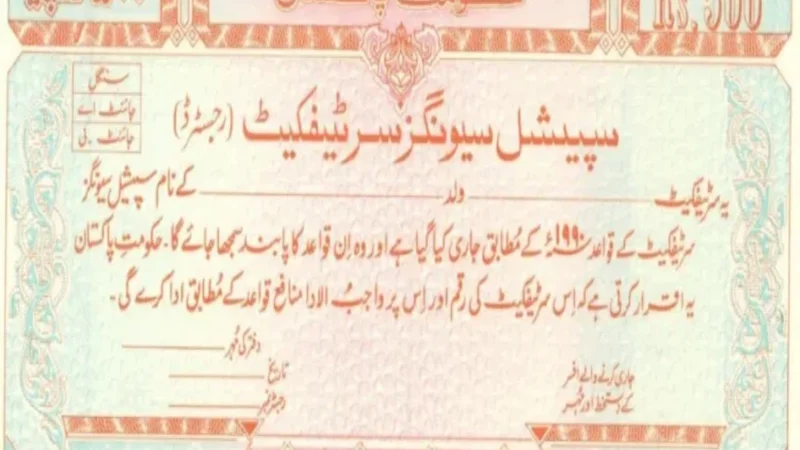 Rs. 500
سنگل
جائنٹ اے
جائنٹ ۔ بی
سپیشل سیونگز سرٹیفکیٹ (رجسٹرڈ)
یہ سرٹیفکیٹ ولد کے نام سپیشل سیونگز
سرٹیفکیٹ کے قواعد ۱۹۹۰ء کے مُطابق جاری کیا گیا ہے اور وہ اِن قواعد کا پابند سمجھا جائے گا۔ حکومتِ پاکستان
یہ اقرار کرتی ہے کہ اِس سرٹیفکیٹ کی رقم اور اِس پر واجبُ الادا منافع قواعد کے مُطابق ادا کرے گی۔
دفتر کی مُہر
تاریخ
رجسٹر نمبر
جاری کرنے والے افسر
کے دستخط اور مُہر